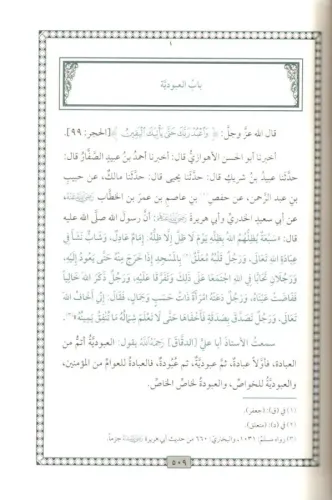 باب العبودية
قال الله عزَّ وجلَّ: ﴿وَاعْبُدْ رَبَّكَ حَتَّى يَأْتِيَكَ الْيَقِينُ﴾ [الحجر: ٩٩].
أخبرنا أبو الحسن الأهوازيُّ قال: أخبرنا أحمدُ بنُ عبيدٍ الصَّفَّارُ قال:
حدَّثنا عبيدُ بنُ شريكٍ قال: حدَّثنا يحيى قال: حدَّثنا مالكٌ، عن حبيبِ
بنِ عبد الرَّحمن، عن حفصِ(١) بنِ عاصمِ بنِ عمرَ بنِ الخطَّابِ،
عن أبي سعيدٍ الخدريِّ وأبي هريرةَ: أنَّ رسولَ الله صلَّى الله عليه
قال: «سَبْعَةٌ يُظِلُّهُمُ اللهُ بِظِلِّهِ يَوْمَ لَا ظِلَّ إِلَّا ظِلُّهُ: إِمَامٌ عَادِلٌ، وَشَابٌّ نَشَأَ فِي
عِبَادَةِ اللهِ تَعَالَى، وَرَجُلٌ قَلْبُهُ مُعَلَّقٌ(٢) بِالْمَسْجِدِ إِذَا خَرَجَ مِنْهُ حَتَّى يَعُودَ إِلَيْهِ،
وَرَجُلَانِ تَحَابَّا فِي اللهِ اجْتَمَعَا عَلَى ذَلِكَ وَتَفَرَّقَا عَلَيْهِ، وَرَجُلٌ ذَكَرَ اللهَ خَالِيًا
فَفَاضَتْ عَيْنَاهُ، وَرَجُلٌ دَعَتْهُ امْرَأَةٌ ذَاتُ حَسَبٍ وَجَمَالٍ، فَقَالَ: إِنِّي أَخَافُ اللهَ
تَعَالَى، وَرَجُلٌ تَصَدَّقَ بِصَدَقَةٍ فَأَخْفَاهَا حَتَّى لَا تَعْلَمَ شِمَالُهُ مَا تُنْفِقُ يَمِينُهُ»(٣).
سمعتُ الأستاذَ أبا عليٍّ [الدقَّاقَ] رحمه الله يقول: العبوديَّةُ أتمُّ من
العبادة، فأوَّلًا عبادةٌ، ثمَّ عبوديَّةٌ، ثم عُبُودةٌ، فالعبادةُ للعوامِّ من المؤمنين،
والعبوديَّةُ للخواصِّ، والعبودةُ لخاصِّ الخاصِّ.
(١) في (ق): (جعفر).
(٢) في (د): (متعلق).
(٣) رواه مسلم: ١٠٣١، والبخاري: ٦٦٠ من حديث أبي هريرة رضي الله عنه جزماً.
٥٠٩